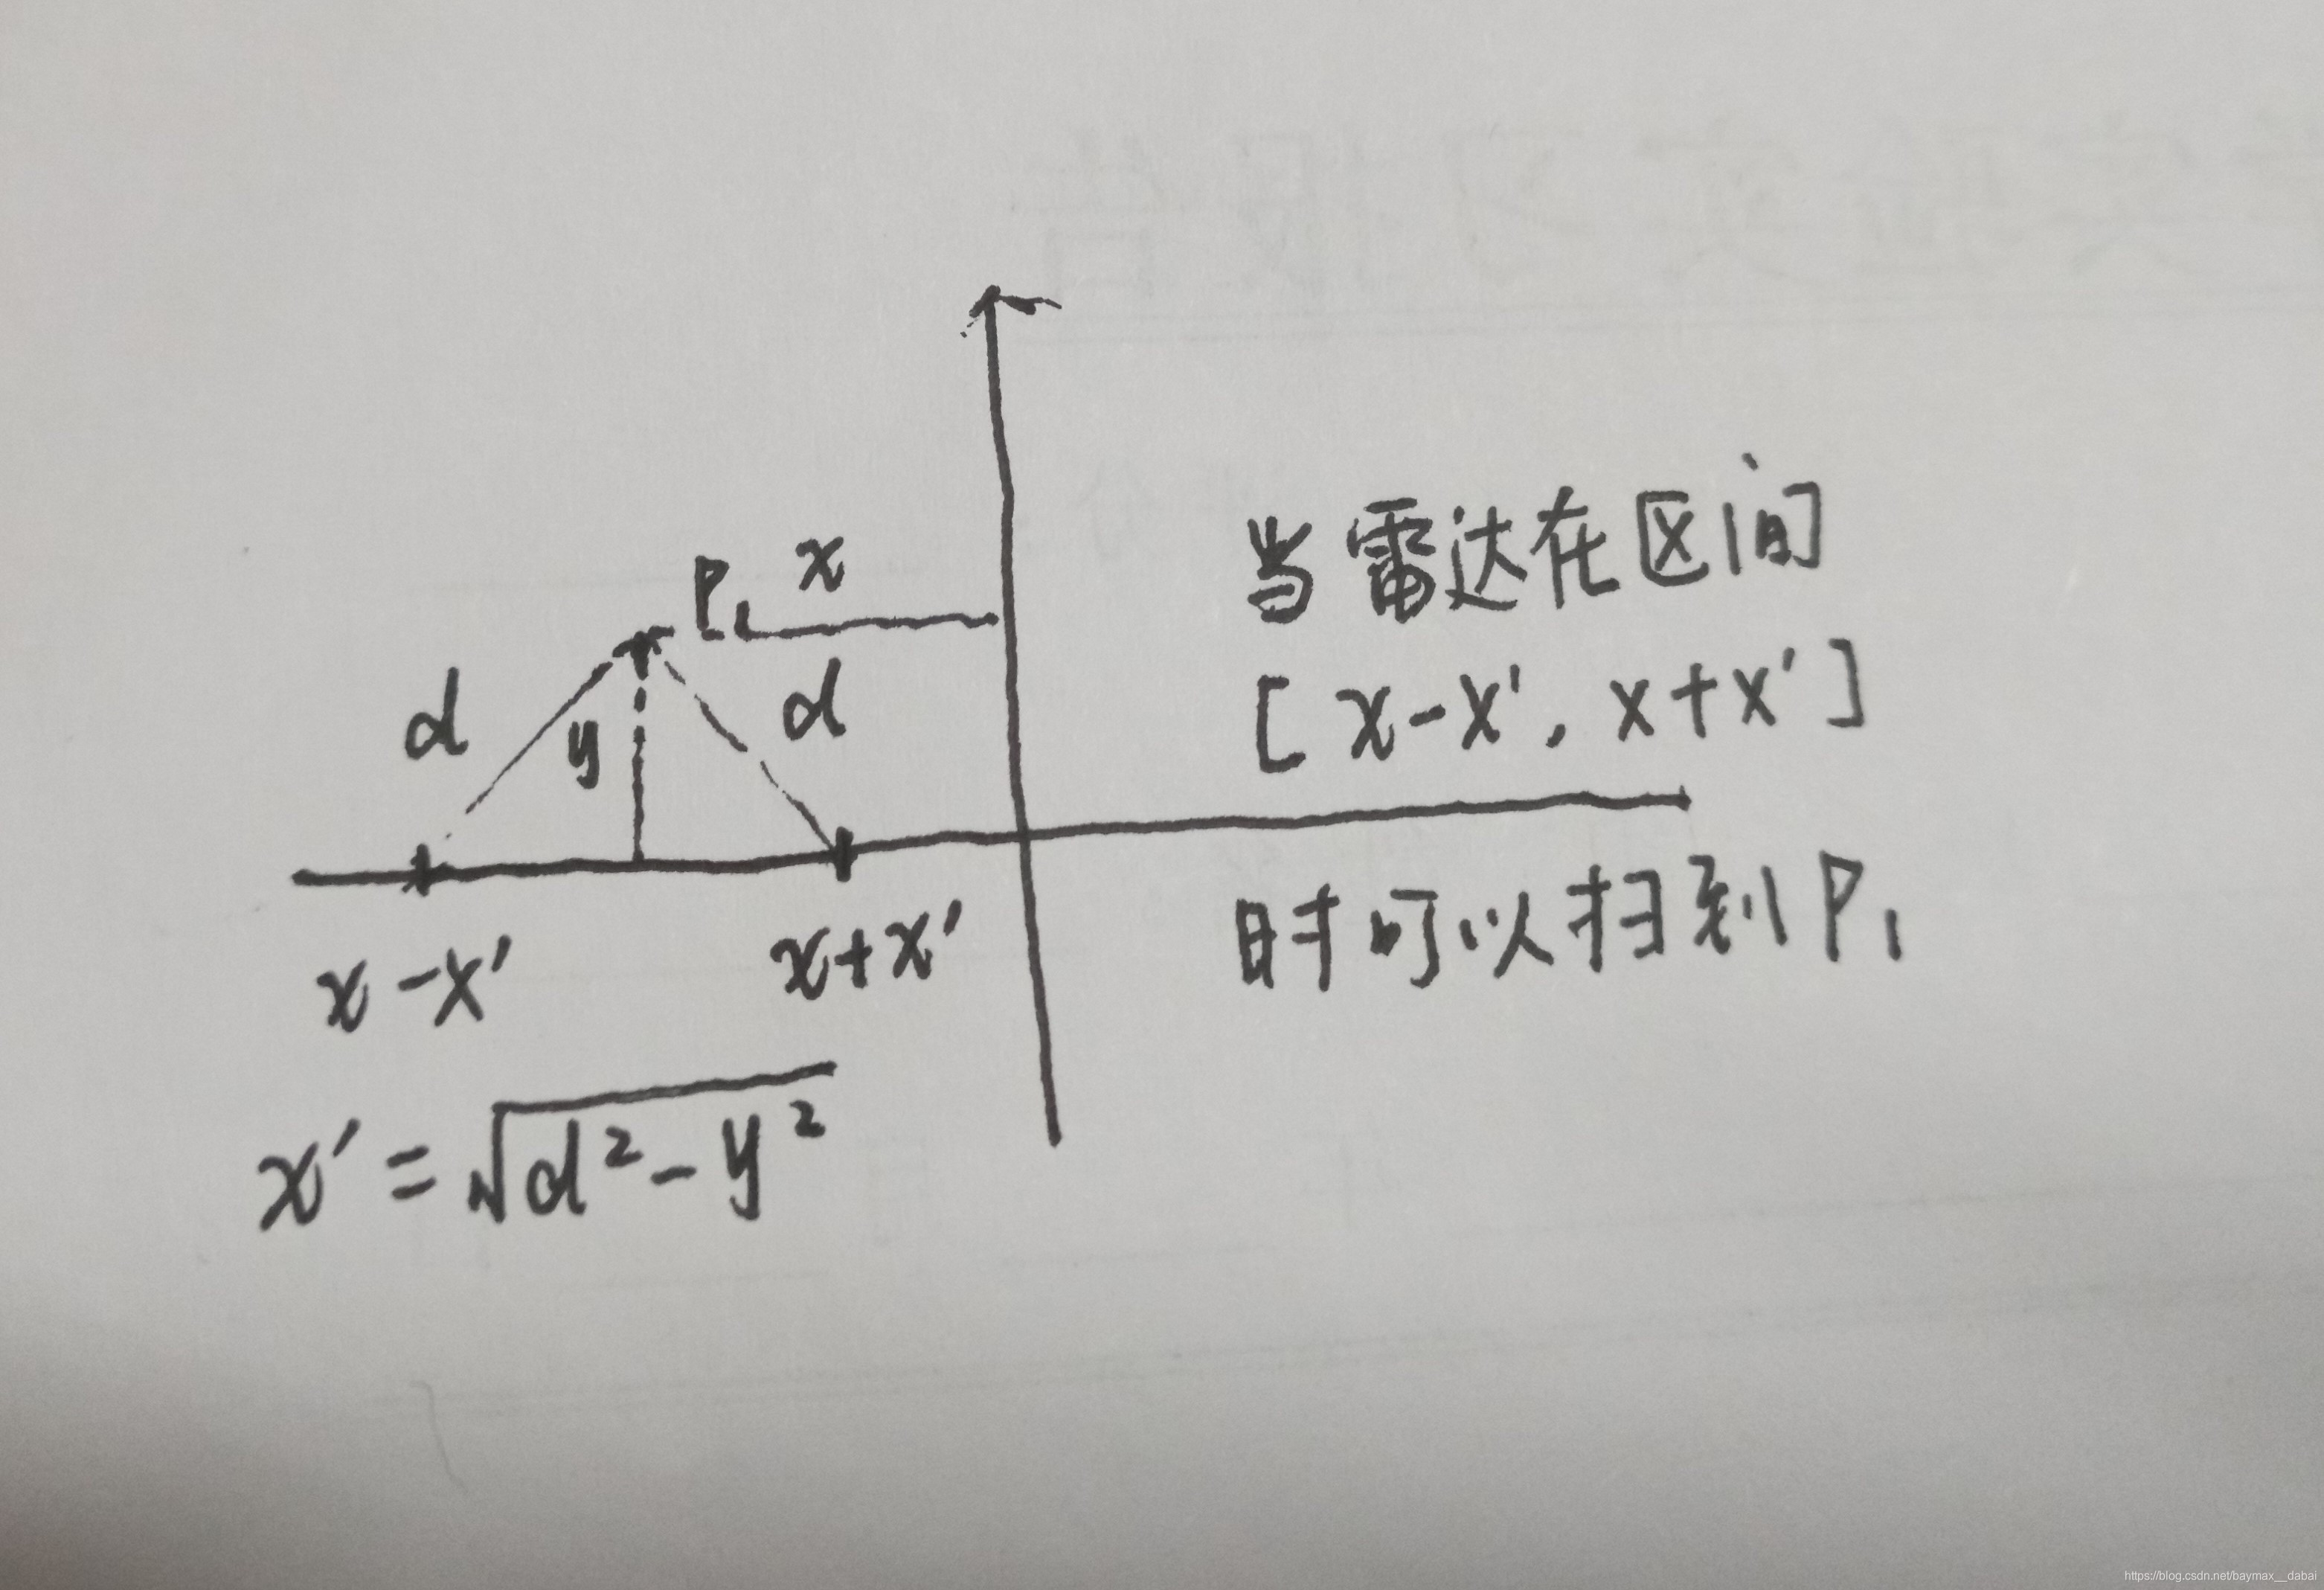 P₁ x
d y d
x-x' x+x'
x' = √(d²-y²)
当雷达在区间
[x-x', x+x']
时可以扫到P₁
https://blog.csdn.net/baymax__dabai